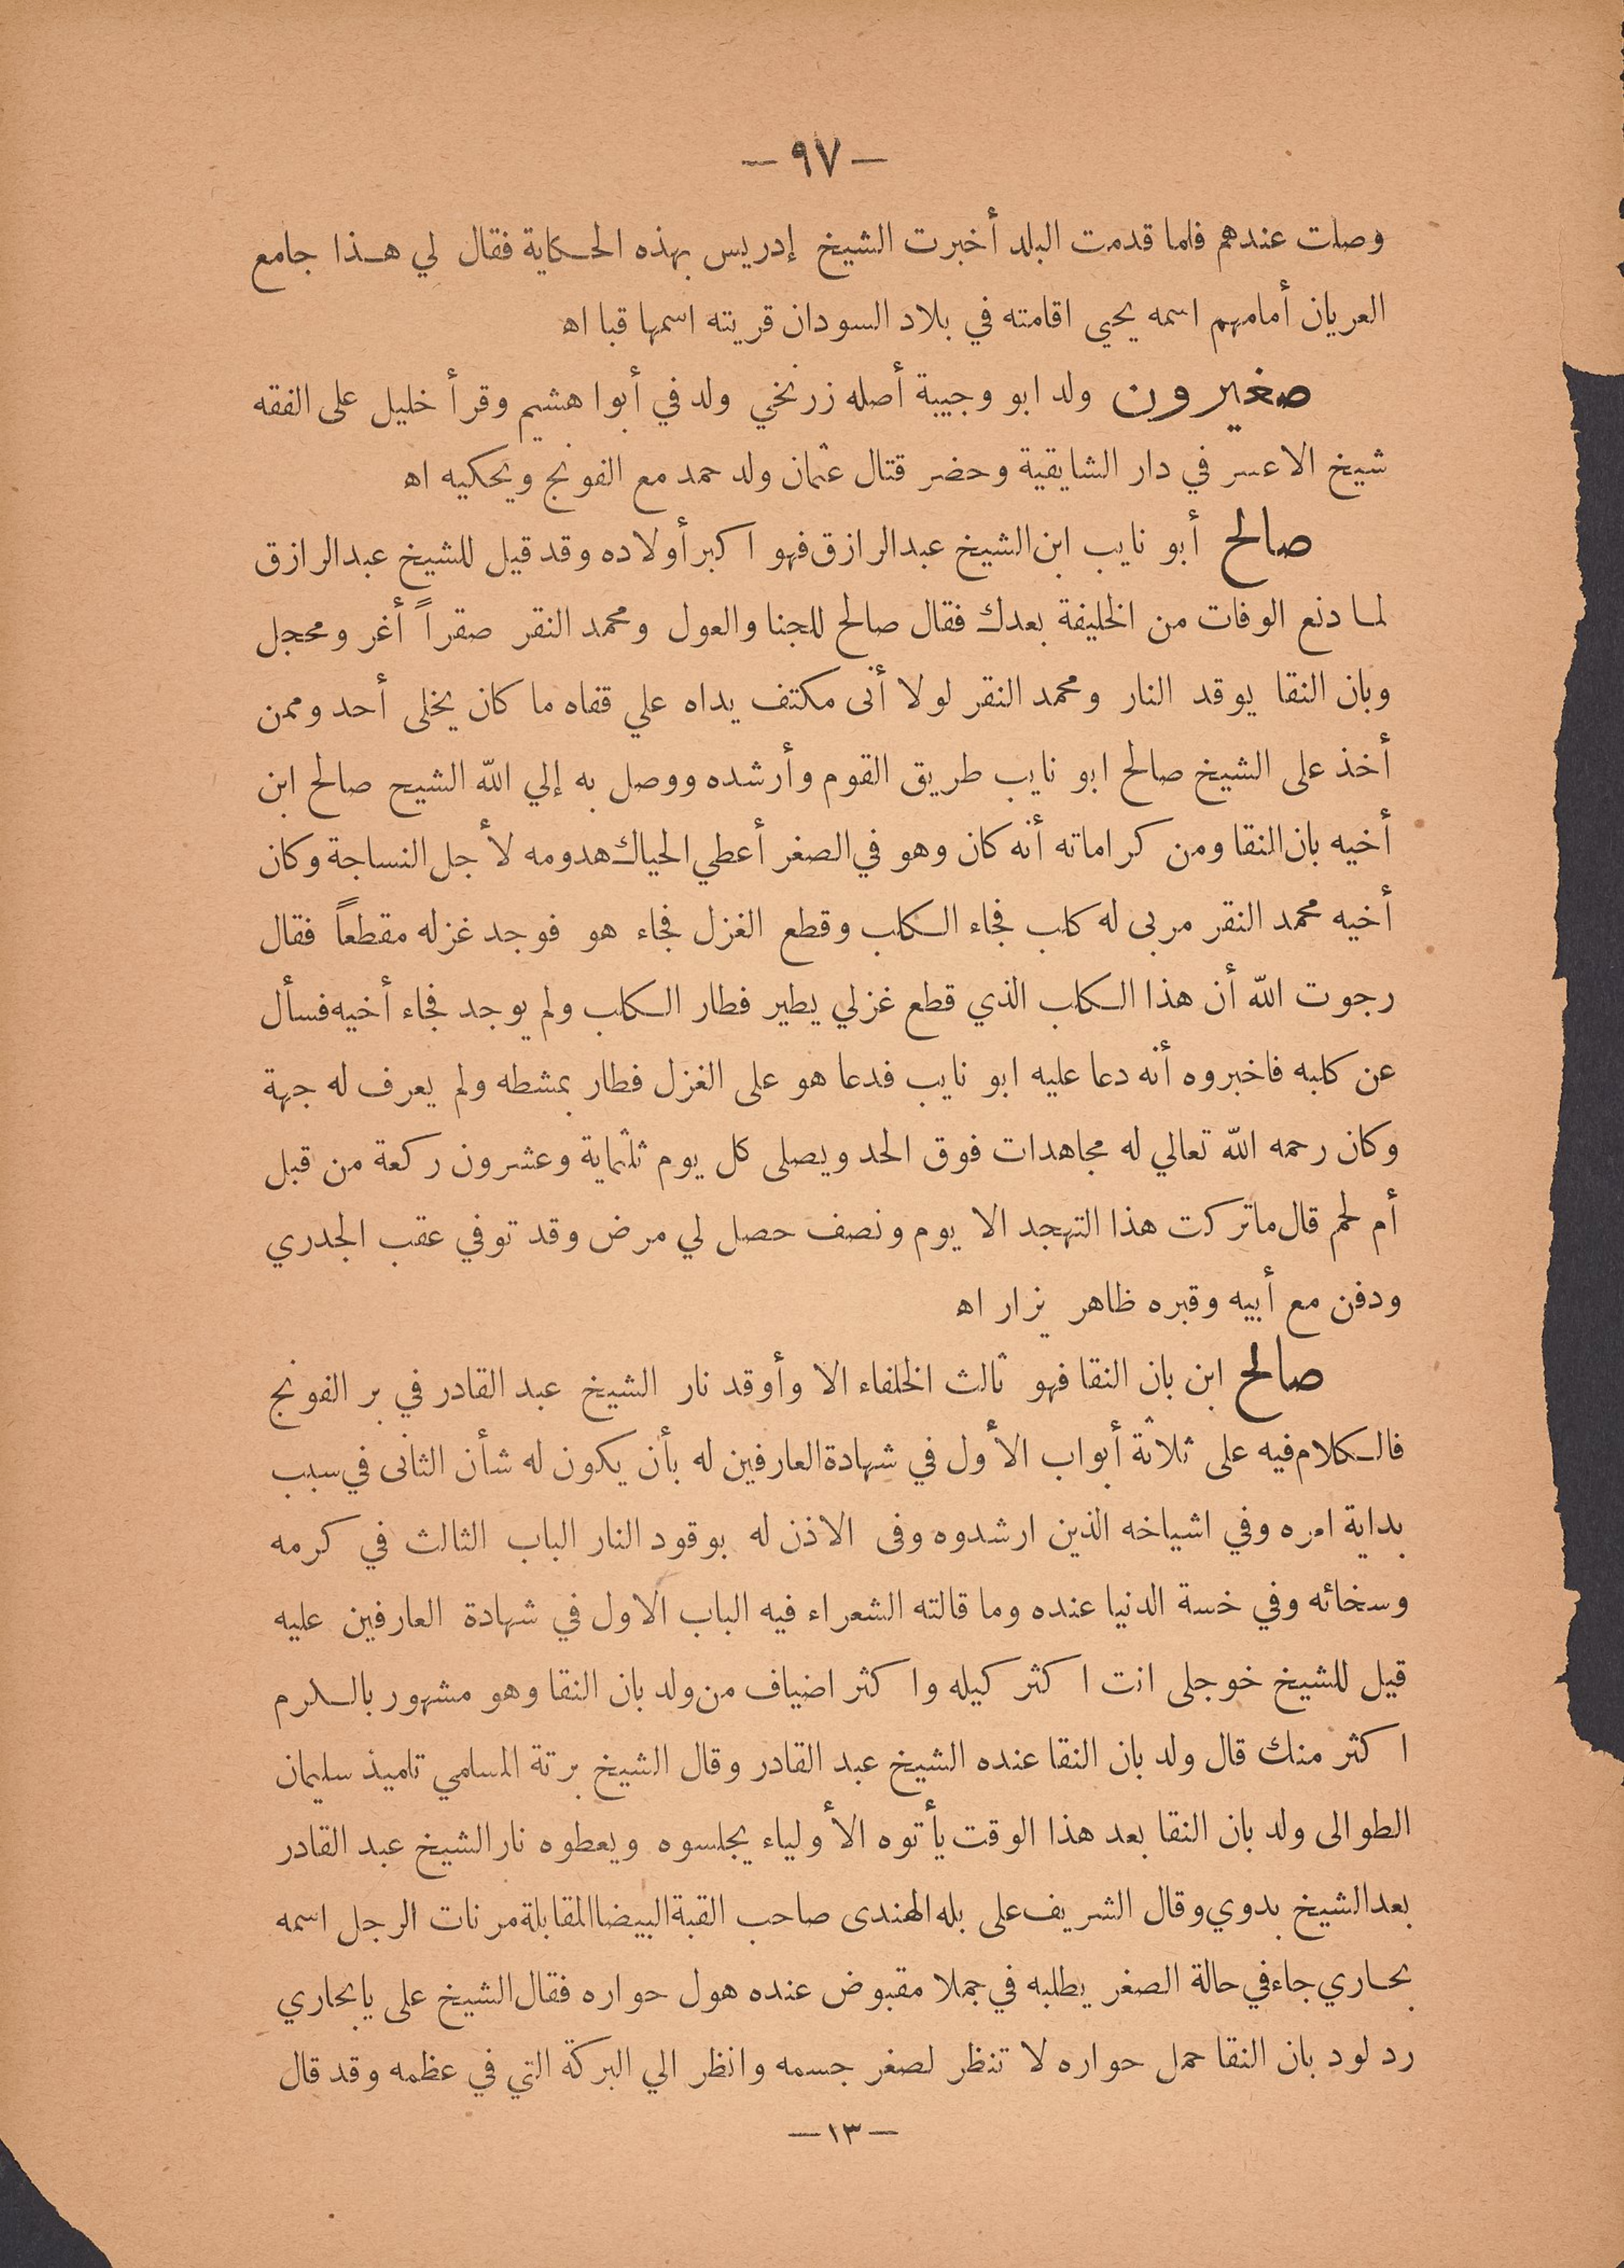 — ٩٧ —
وصلت عندهم فلما قدمت البلد أخبرت الشيخ إدريس بهذه الحكاية فقال لي هذا جامع
العريان أمامهم اسمه يحيى اقامته في بلاد السودان قريته اسمها قبا اه
صغيرون ولد ابو وجيبة أصله زرنخي ولد في أبوا هشيم وقرأ خليل على الفقه
شيخ الاعسر في دار الشايقية وحضر قتال عثمان ولد حمد مع الفونج ويحكيه اه
صالح أبو نايب ابن الشيخ عبدالرازق فهو اكبر أولاده وقد قيل للشيخ عبدالرازق
لما دنع الوفات من الخليفة بعدك فقال صالح للجنا والعول ومحمد النقر صقراً أغر ومحجل
وبان النقا يوقد النار ومحمد النقر لولا أنى مكتف يداه علي قفاه ما كان يخلى أحد وممن
أخذ على الشيخ صالح ابو نايب طريق القوم وأرشده ووصل به إلي الله الشيح صالح ابن
أخيه بان النقا ومن كراماته أنه كان وهو في الصغر أعطي الحياك هدومه لأجل النساجة وكان
أخيه محمد النقر مربى له كلب فجاء الكلب وقطع الغزل فجاء هو فوجد غزله مقطعاً فقال
رجوت الله أن هذا الكلب الذي قطع غزلي يطير فطار الكلب ولم يوجد فجاء أخيه فسأل
عن كلبه فاخبروه أنه دعا عليه ابو نايب فدعا هو على الغزل فطار بمشطه ولم يعرف له جهة
وكان رحمه الله تعالي له مجاهدات فوق الحد ويصلى كل يوم ثلثماية وعشرون ركعة من قبل
أم لحم قال ماتركت هذا التهجد الا يوم ونصف حصل لي مرض وقد توفي عقب الجدري
ودفن مع أبيه وقبره ظاهر يزار اه
صالح ابن بان النقا فهو ثالث الخلفاء الا وأوقد نار الشيخ عبد القادر في بر الفونج
فالكلام فيه على ثلاثة أبواب الأول في شهادة العارفين له بأن يكون له شأن الثانى في سبب
بداية امره وفي اشياخه الذين ارشدوه وفى الاذن له بوقود النار الباب الثالث في كرمه
وسخائه وفي خسة الدنيا عنده وما قالته الشعراء فيه الباب الاول في شهادة العارفين عليه
قيل للشيخ خوجلى انت اكثر كيله واكثر اضياف من ولد بان النقا وهو مشهور بالكرم
اكثر منك قال ولد بان النقا عنده الشيخ عبد القادر وقال الشيخ برتة المسلمي تلميذ سليمان
الطوالى ولد بان النقا بعد هذا الوقت يأتوه الأولياء يجلسوه ويعطوه نار الشيخ عبد القادر
بعد الشيخ بدوي وقال الشريف على بله الهندى صاحب القبة البيضا المقابلة مرنات الرجل اسمه
بحاري جاء في حالة الصغر يطلبه في جملا مقبوض عنده هول حواره فقال الشيخ على يابحاري
رد لود بان النقا حمل حواره لا تنظر لصغر جسمه وانظر الي البركة التي في عظمه وقد قال
— ١٣ —